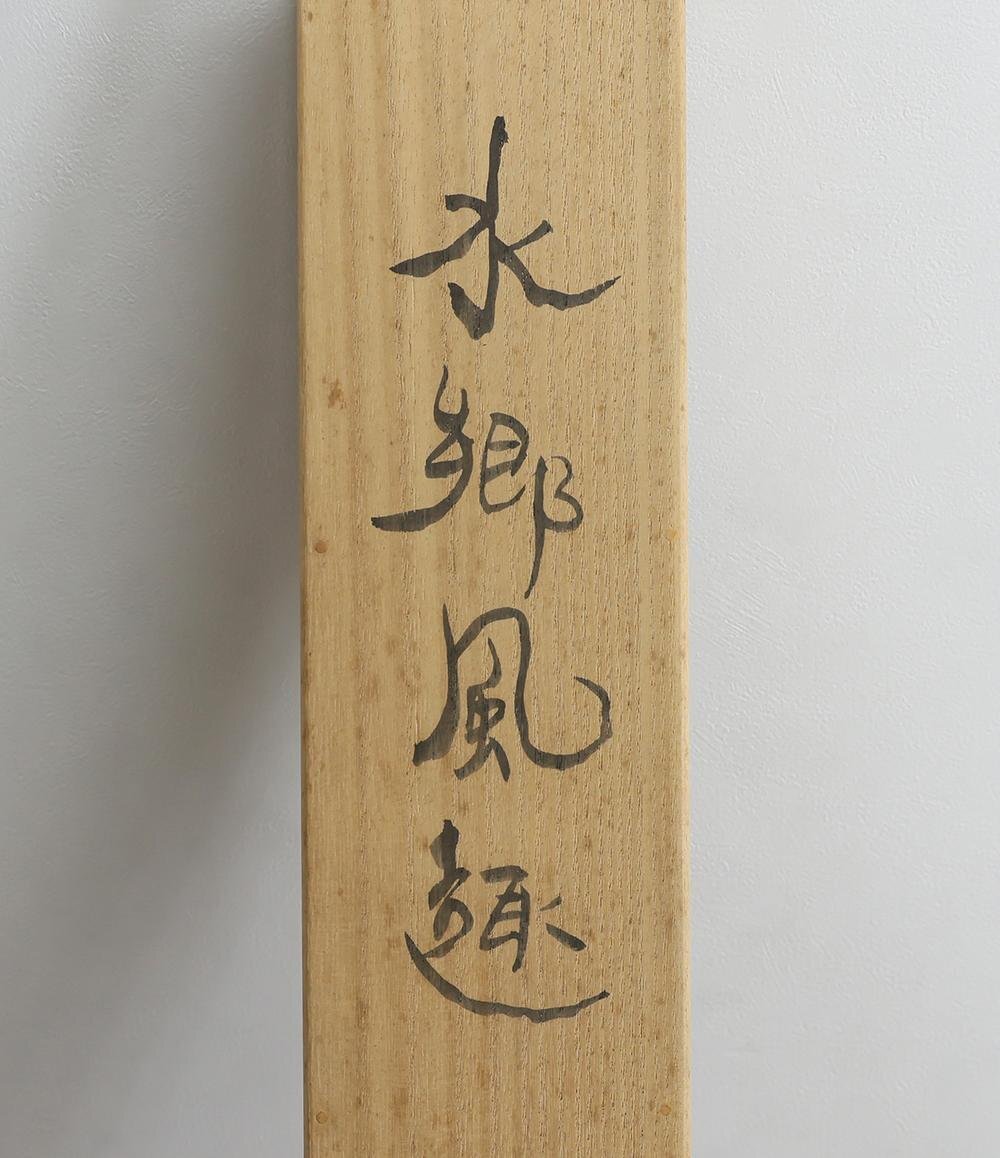 水郷風趣